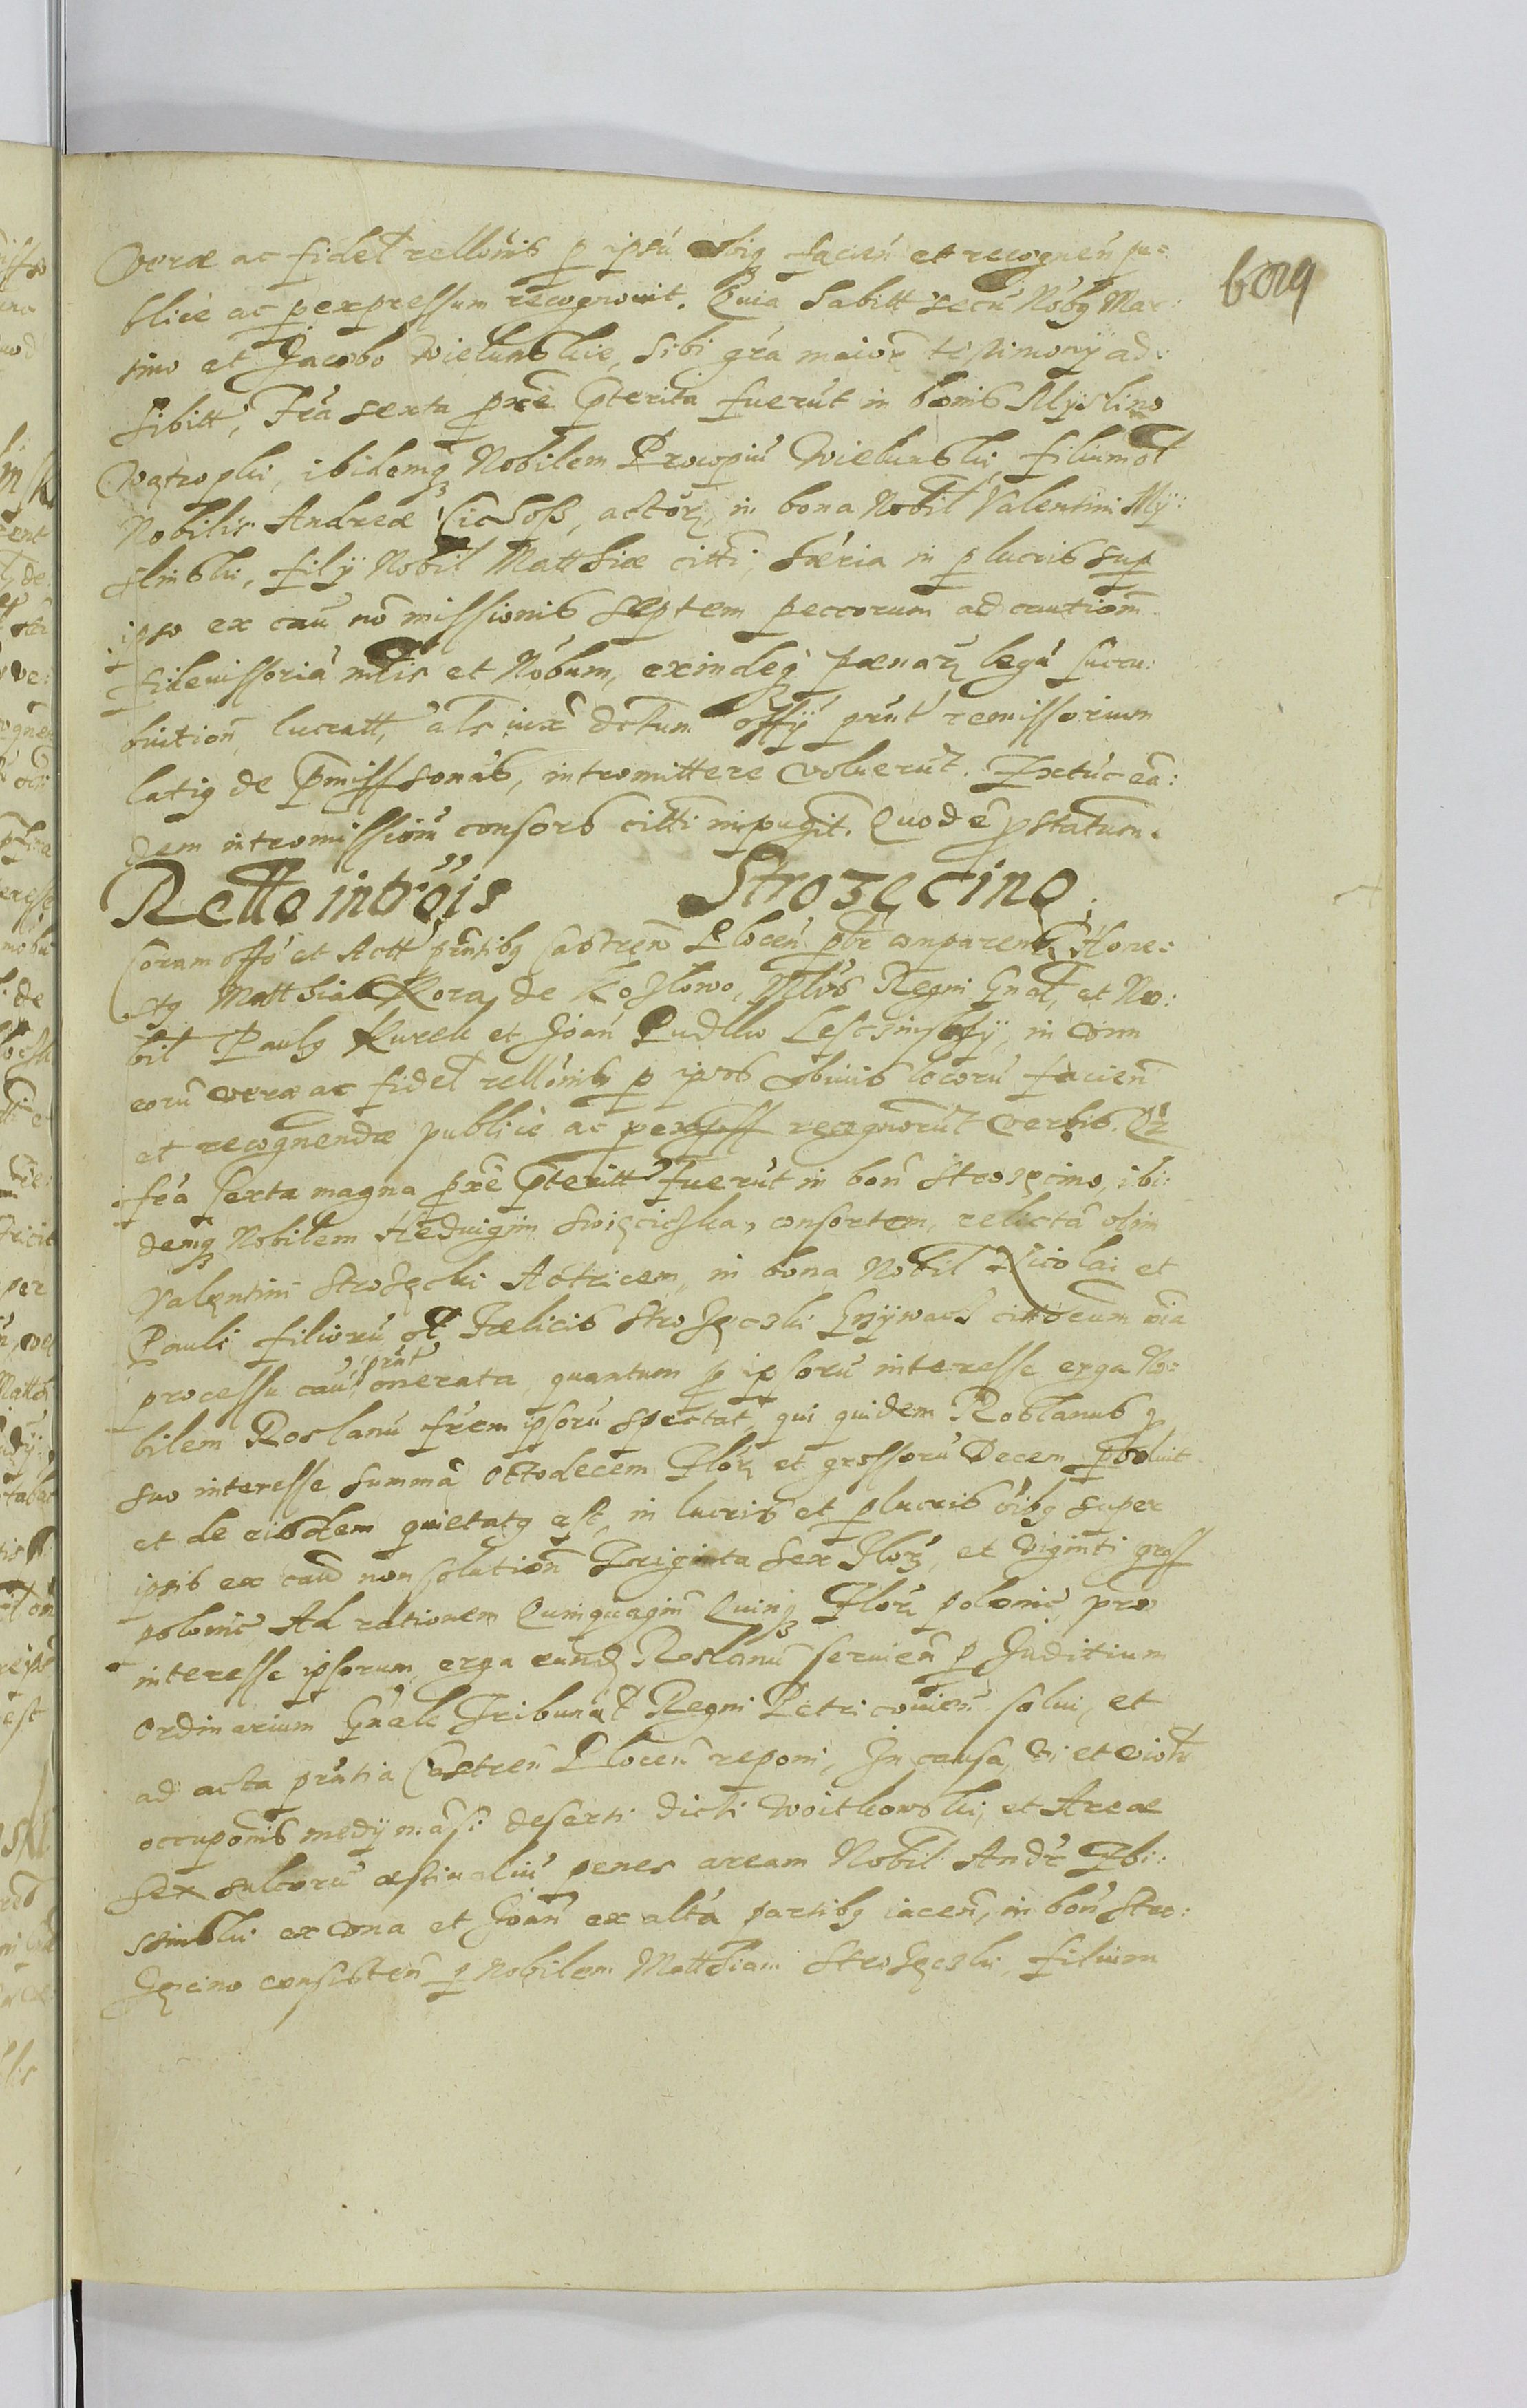 veræ ac fidel rellonis p ipsũ obiq facień et recogneń pu:
blice ac p expressum recognouit. Quia habitt secũ Nobq Mar:
tino et Jacobo Wielunskie, sibi gra maior testimony ad:
hibitt, Fra sexta pxe pterita fuerũt in bonis Myslino
Wątropki, ibidemq Nobilem Procopiũ Wielunski, filium ol
Nobilis Andreæ Cichosz, actorz, in bona Nobil Valentini My:
slinski, filÿ Nobil Matthiæ citti, hæria in p lucris sup
ipso ex cau no missionis septem peccorum ad cautiom
fideiussoria mltis et Nobum, exindeq pænarz legũ luccu:
buition, lucratt, als iuxˢ dctum offÿ prnt remissorium
latiq de pmissˢ sonãs, intromittere voluerũt. Extũc eã:
dem intromissiom consors citti impugit. Quod ẽ pstatum.
Rello intrõis Strozęcino.
Coram offõ et Actt prntibq Castreń Plocen ptr comparens Hone:
stq Matthias Kora de Kozlowo, Mtris Regni Gnal, et No:
bil Paulq Kurek et Joań Pudllo Lesczinsky, in vim
eorũ veræ ac fidel rellonis p ipsos obiuis locorũ facień
et recognendæ publicè ac p expˢˢ recognorũt verbis. Qr
fra sexta magna pxe pteritt fuerũt in bon Strozęcino, ibi:
demq Nobilem Heduigim Swięcicska, consortem, relictã olim
Valentini Strozęcki Actricem, in bona Nobil Nicolai et
Pauli filiorũ ol Fœlicis Strozęczki Grzÿwacz citt eum via
processu cau prnt onerata, quantum p ipsorũ interesse erga No:
bilem Roslanũ frem ipsorũ spectat, qui quidem Roslanus p
suo interesse summã octodecem Florz et grossorũ Decem psoluit
et de eisdem quietatq est, in lucris et p lucris oibq super
ipsis ex cau non solution Triginta sex Florz, et viginti gross
polonic Ad rationem Quinquagin Quinq Florz polonic, pro
interesse ipsorum erga eundz Roslanũ seruien p Juditium
Ordinarium Gnale Tribunal Regni Petricouien solui, et
ad acta prntia Castreń Plocen reponi, In causa, vi et violr
occuponis medÿ mãsi deserti dicti Woitkowski, et Areæ
sex sulcorũ æstiualiũ penes aream Nobil Andr Zbi:
szinski ex vna et Joan ex altã partibq iaceń, in bon Stro:
zęcino consisteń p Nobilem Matthiam Strozęczki, filium